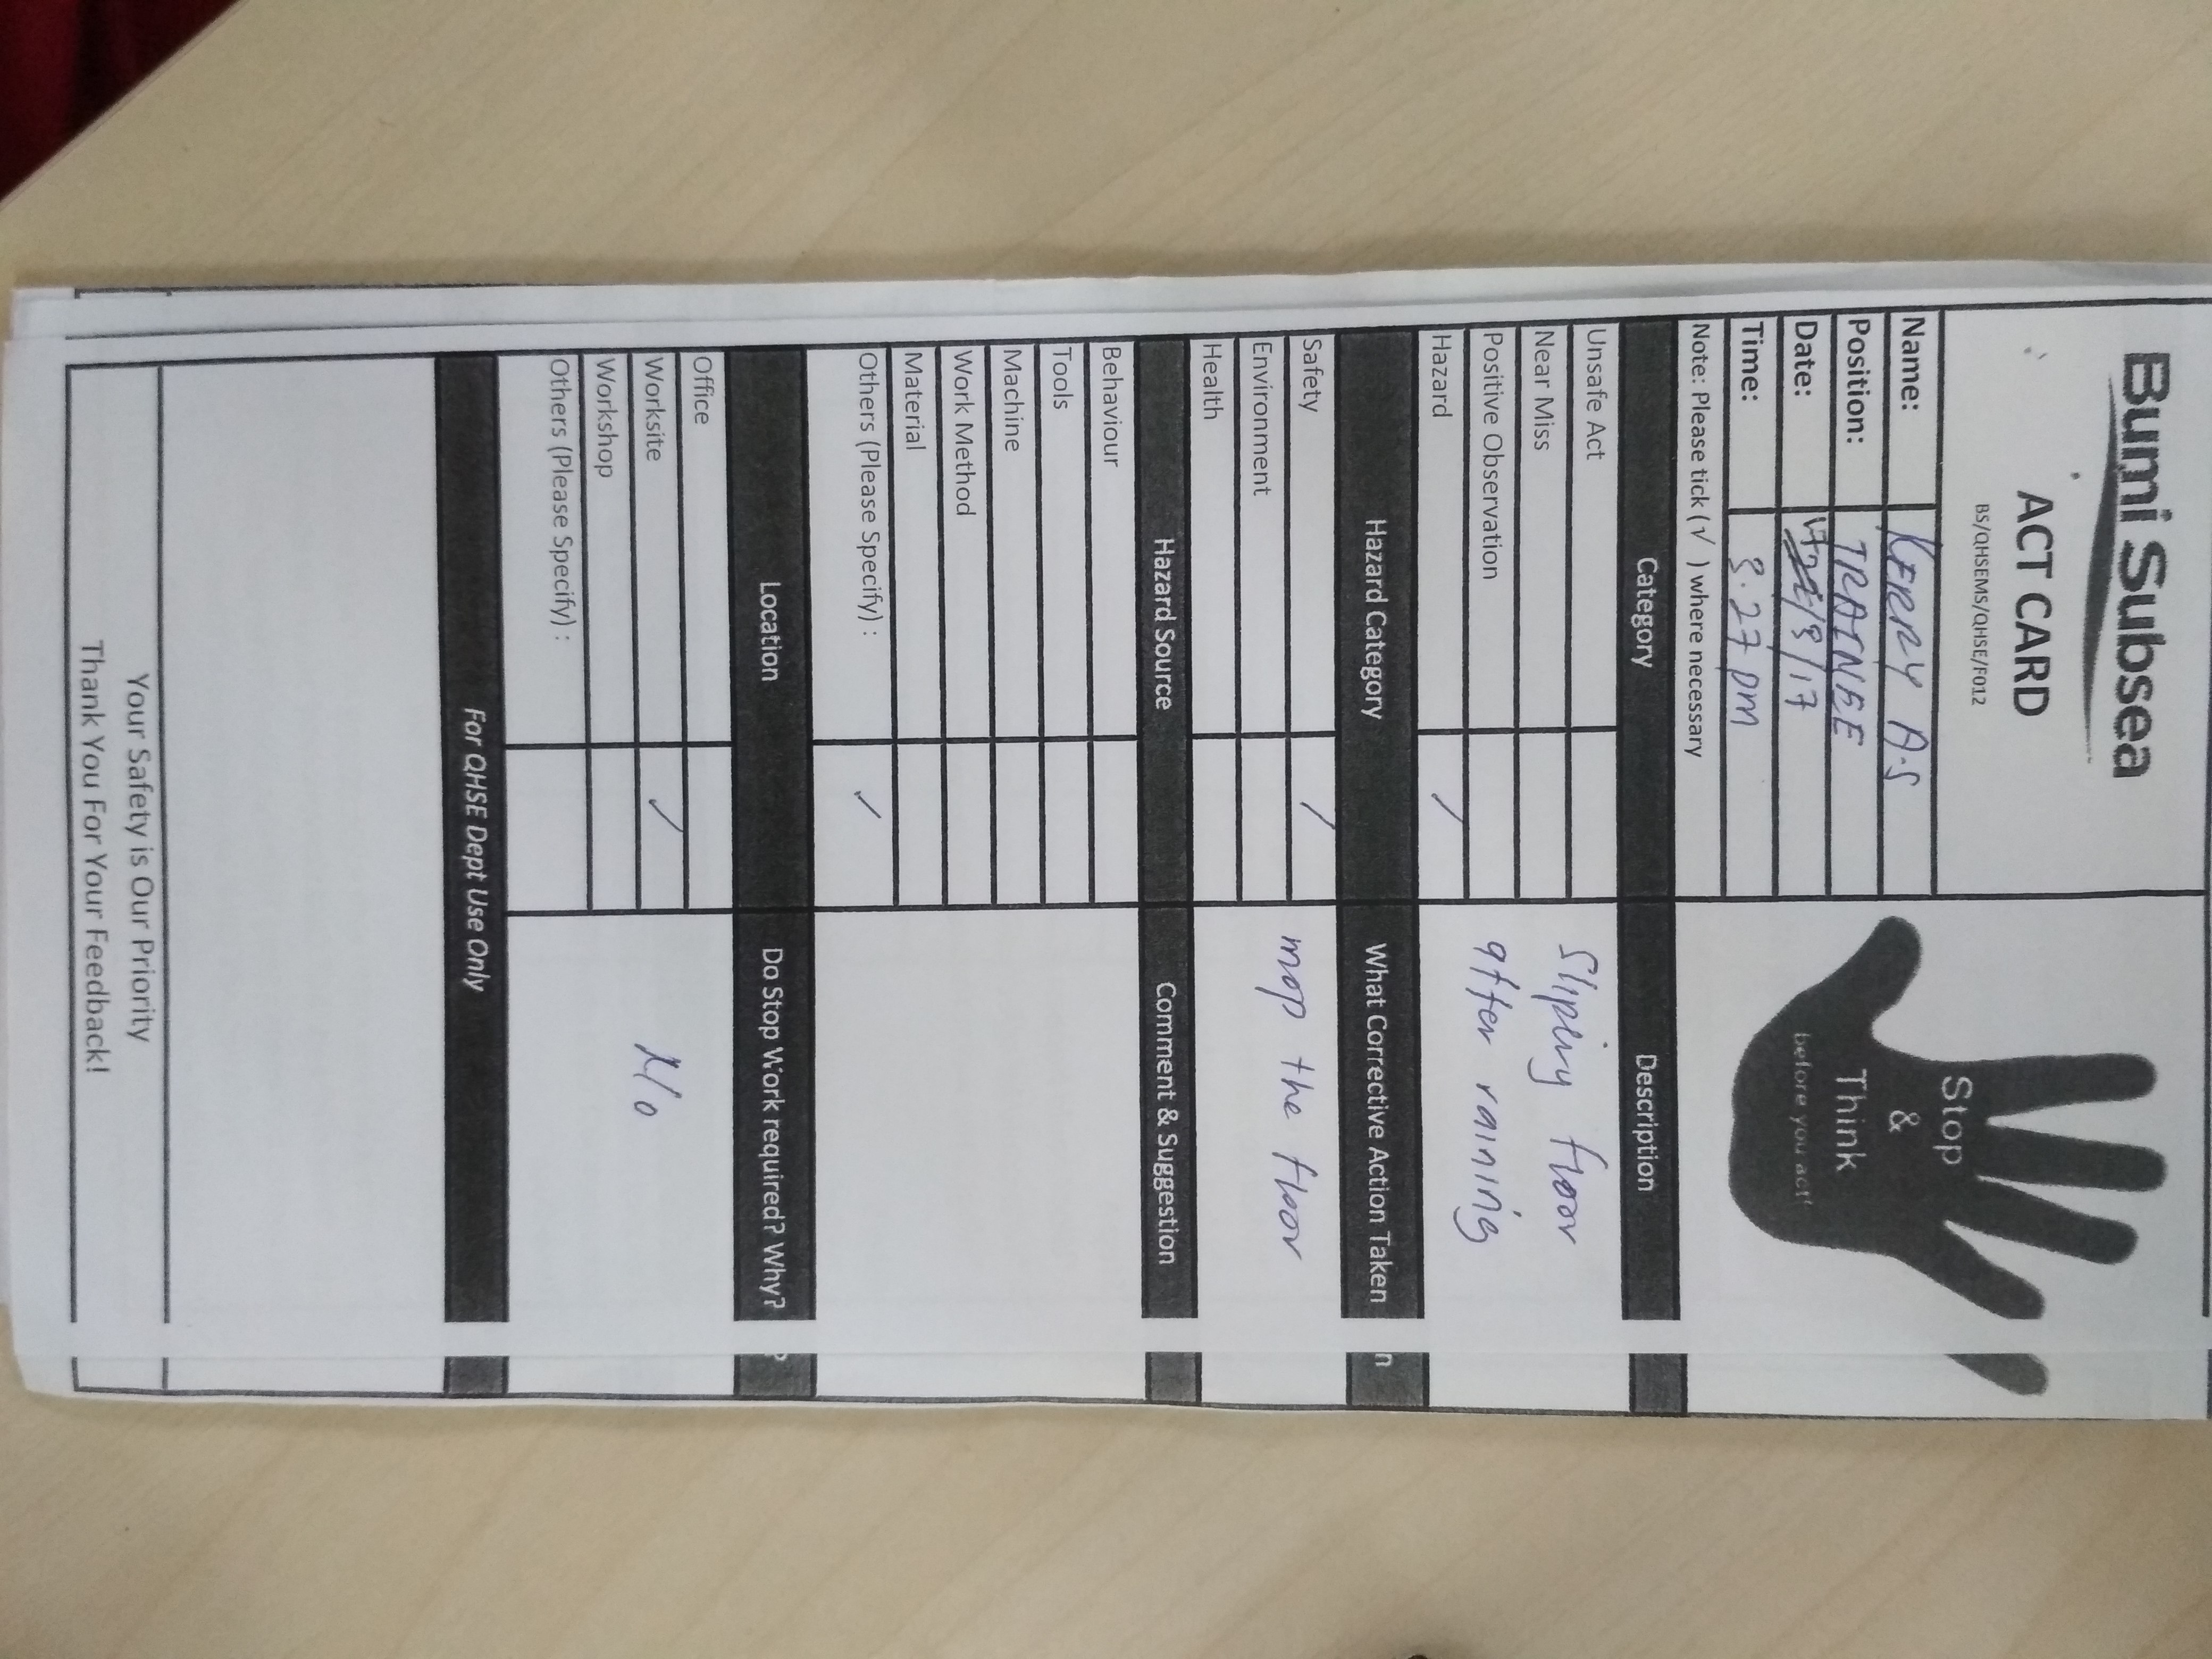 Bumi Subsea
ACT CARD
BS/QHSEMS/QHSE/F012
Stop
&
Think
before you act!
Name: KERRY A.S
Position: TRAINEE
Date: /8/17
Time: 3.27 pm
Note: Please tick (√ ) where necessary
Category Description
Unsafe Act
Near Miss
Positive Observation
Hazard ✓
Slippery floor
after raining
Hazard Category What Corrective Action Taken
Safety ✓
Environment
Health
mop the floor
Hazard Source Comment & Suggestion
Behaviour
Tools
Machine
Work Method
Material
Others (Please Specify) : ✓
Location Do Stop Work required? Why?
Office
Worksite ✓
Workshop
Others (Please Specify) :
No
For QHSE Dept Use Only
Your Safety is Our Priority
Thank You For Your Feedback!